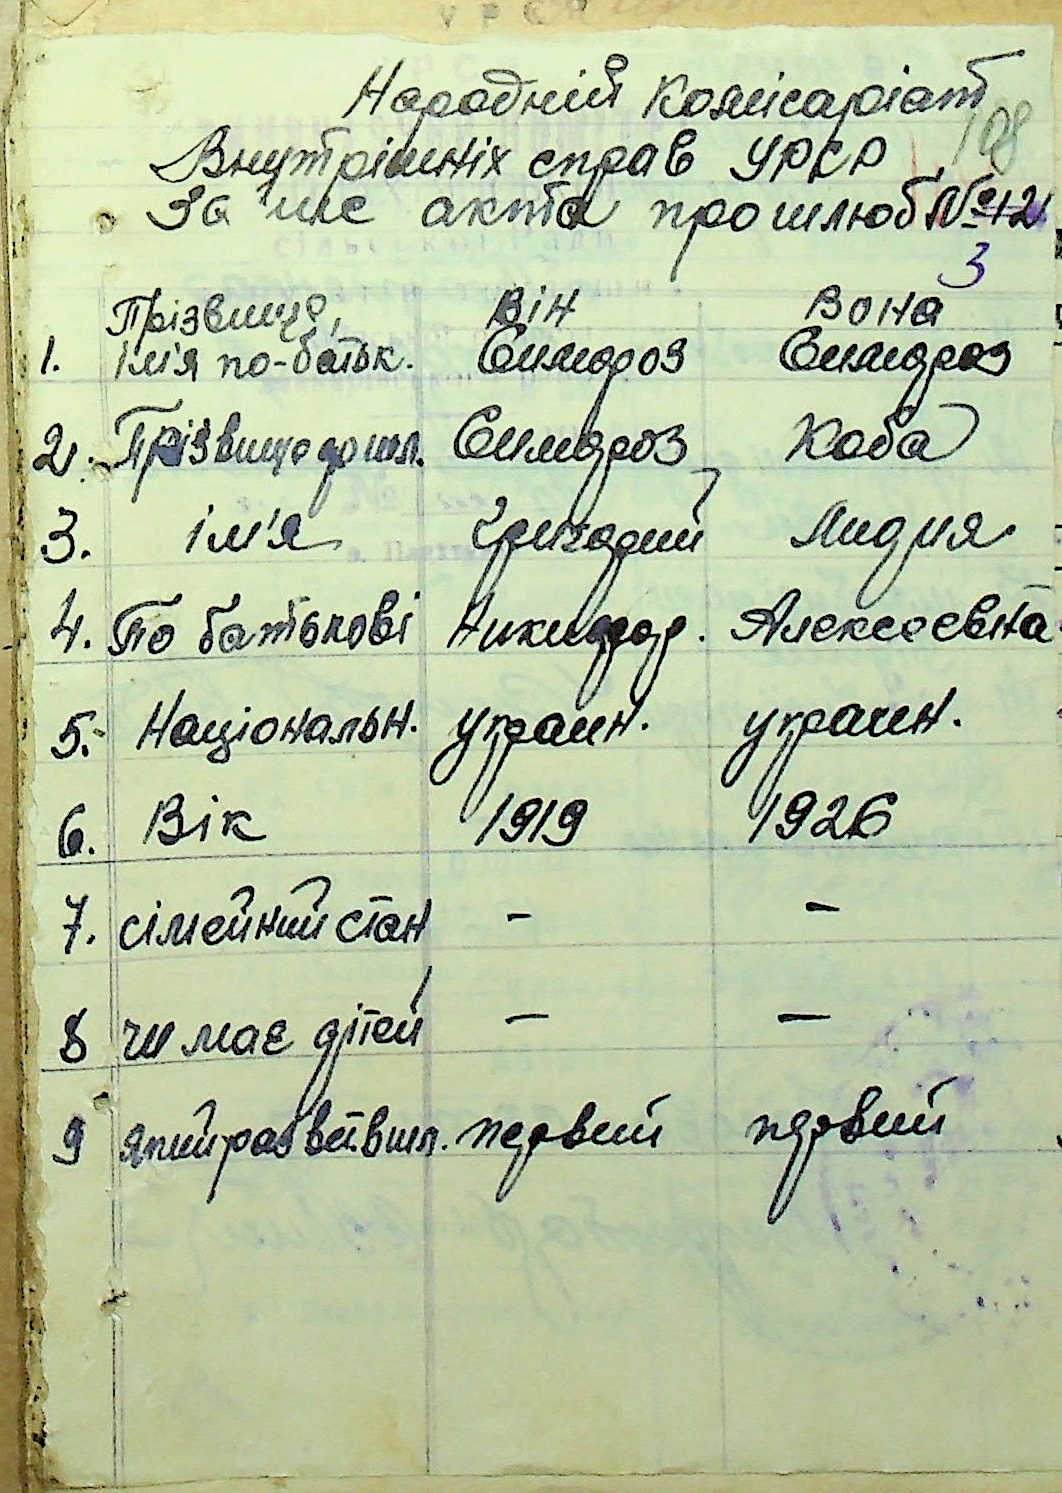 108
Народній Комісаріат
Внутрішніх справ УРСР
Запис акта про шлюб №12
3
Прізвище, Він Вона
1. ім'я по-батьк.
2. Прізвище до шл. Коба
3. ім'я Григорий Лидия
4. По батькові Алексеевна
5. Національн. украин. украин.
6. Вік 1919 1926
7. сімейний стан - -
8 чи має дітей - -
9 первий первий